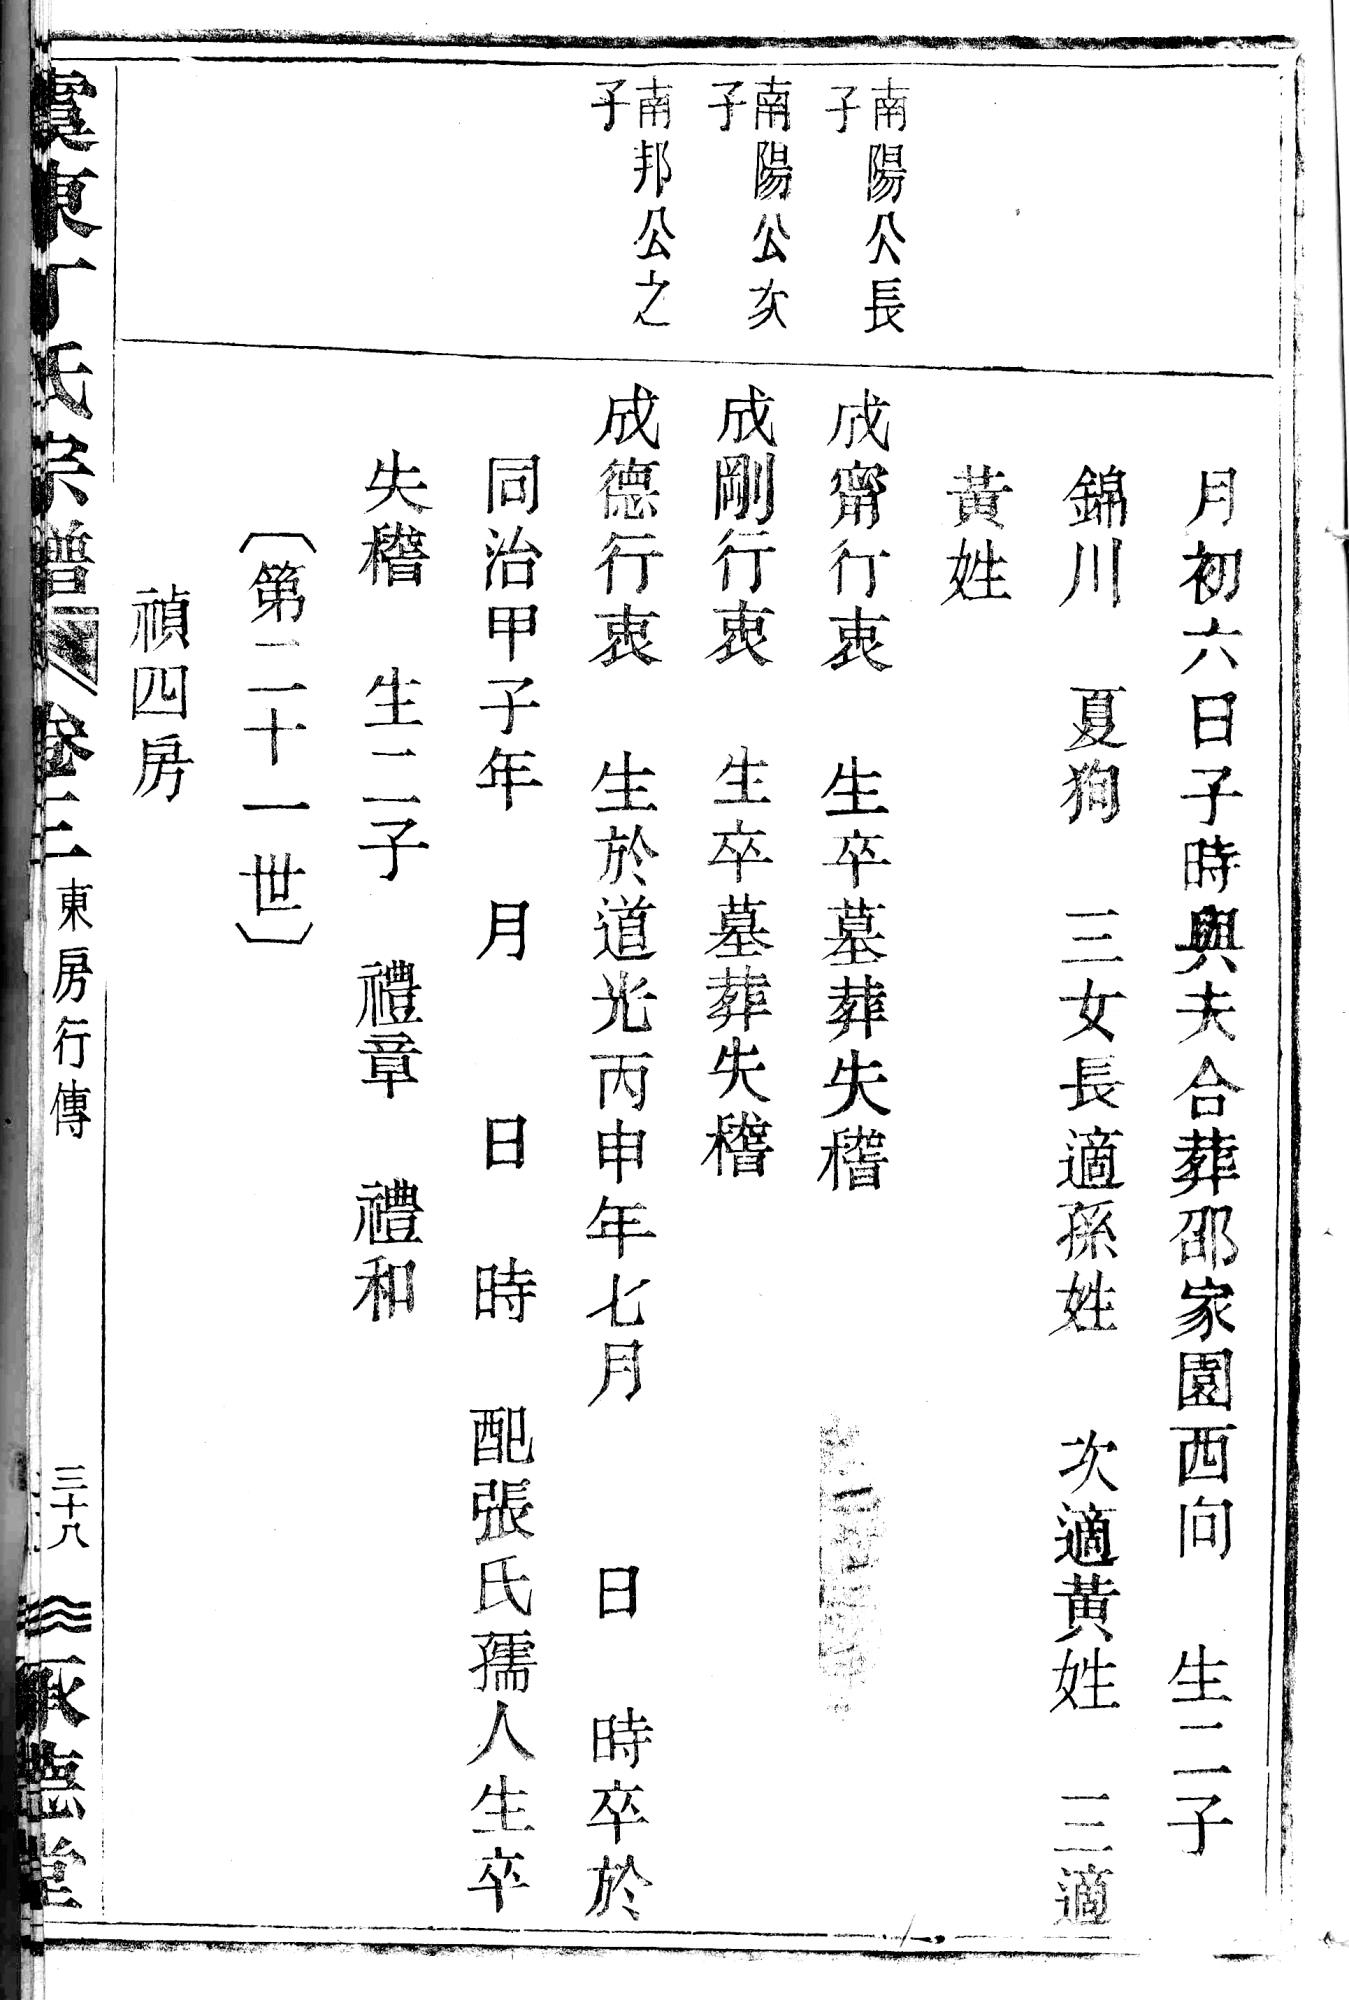 月初六日子時與夫合葬邵家園西向　生二子
錦川　夏狗　三女長適孫姓　次適黃姓　三適
黃姓
南陽公長
子
成甯行衷　生卒墓葬失稽
南陽公次
子
成剛行衷　生卒墓葬失稽
南邦公之
子
成德行衷　生於道光丙申年七月　　日　時卒於
同治甲子年　月　　日　時　配張氏孺人生卒
失稽　生二子　禮章　禮和
〔第二十一世〕
禎四房
虞東丁氏宗譜　卷三　東房行傳　三十八　承德堂